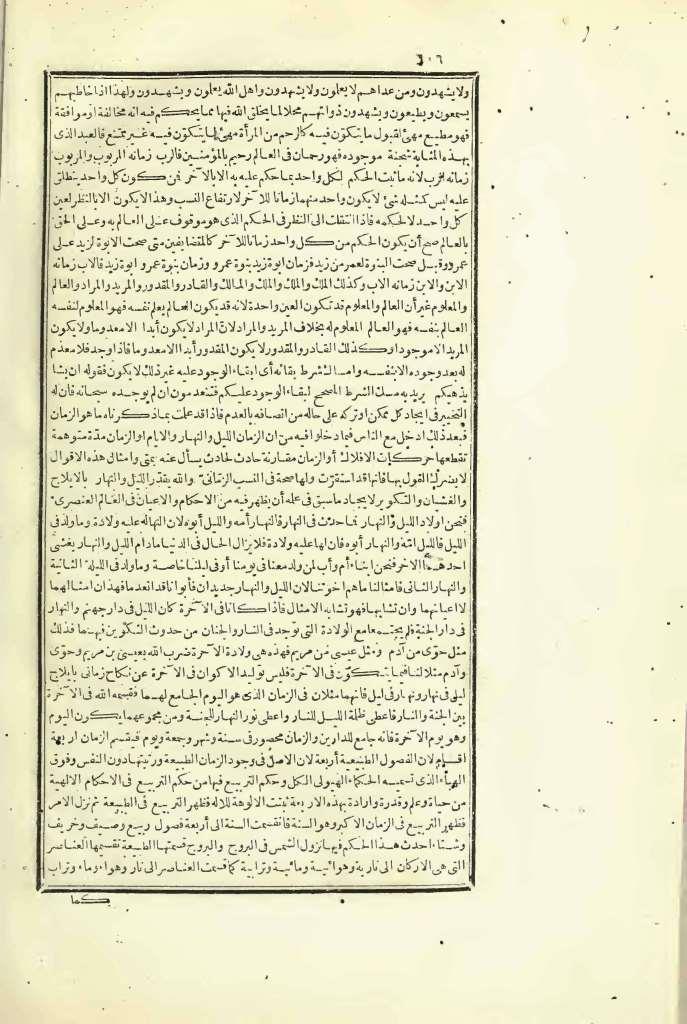 ٦٠٦
ولا يشهدون ومن عداهم لا يعلمون ولا يشهدون واهل الله يعلمون ويشهدون ولهذا اذا خاطبهم
يسمعون ويطيعون ويشهدون ذواتهم محلا لما يخلق الله فيها مما يحكم فيه انه مخالفة او موافقة
فهو مطيع مهيأ لقبول ما يتكوّن فيه كالرحم من المرأة مهيأ لما يتكوّن فيه غير ممتنع فالعبد الذى
بهذه المثابة شجنة موجوده فهو رحمان فى العالم رحيم بالمؤمنين فالرب زمانه المربوب والمربوب
زمانه الرب لانه ما ثبت الحكم لكل واحد بما حكم عليه به الا بالآخر فمن كون كل واحد ينطلق
عليه ليس كمثله شئ لا يكون واحد منهما زمانا للآخر لارتفاع النسب وهذا لا يكون الا بالنظر لعين
كل واحد لا لحكمه فاذا انتقلت الى النظر فى الحكم الذى هو موقوف على العالم به وعلى الحق
بالعالم صح أن يكون الحكم من كل واحد زمانا للآخر كالمتضايفين متى صحت الابوة لزيد على
عمرو وقبل صحت البنوة لعمر من زيد فزمان ابوة زيد بنوة عمرو وزمان بنوة عمرو ابوة زيد فالاب زمانه
الابن والابن زمانه الاب وكذلك الملك والملك والملك والمالك والقادر والمقدور والمريد والمراد والعالم
والمعلوم غير أن العالم والمعلوم قد تكون العين واحدة لانه قد يكون العالم يعلم نفسه فهو المعلوم لنفسه
العالم بنفسه فهو العالم المعلوم له بخلاف المريد والمراد لانّ المراد لا يكون أبدا الا معدوما ولا يكون
المريد الا موجودا وكذلك القادر والمقدور لا يكون المقدور أبدا الا معدوما فاذا وجد فلا معدم
له بعد وجوده الا بنفسه وامساك شرط بقائه أى ابقاء الوجود عليه غير ذلك لا يكون فقوله ان يشأ
يذهبكم يريد به مسك الشرط المصحح لبقاء الوجود عليكم فتنعدمون ان لم يوجده سبحانه فان له
التخيير فى ايجاد كل ممكن او تركه على حاله من اتصافه بالعدم فاذا قد علمت بماذكرناه ما هو الزمان
فبعد ذلك ادخل مع الناس فيما دخلوا فيه من ان الزمان الليل والنهار والايام او الزمان مدّة متوهمة
تقطعها حركات الافلاك أو الزمان مقارنة حادث لحادث يسأل عنه بمتى وامثال هذه الاقوال
لا يضرك القول بها فانها قد استقرّت ولها صحة فى النسب الزمانىّ والله يقدّر الليل والنهار بالايلاج
والغشيان والتكوير لايجاد ما سبق فى علمه أن يظهر فيه من الاحكام والاعيان فى العالم العنصرى
فنحن اولاد الليل والنهار فما حدث فى النهار فالنهار أمه والليل أبوه لان لهما عليه ولادة وما ولد فى
الليل فالليل امّه والنهار أبوه فان لهما عليه ولادة فلا يزال الحال فى الدنيا ما دام الليل والنهار يغشى
احدهما الآخر فنحن ابناء أم وأب لمن ولد معنا فى يومنا أو فى ليلتنا خاصة وما ولد فى الليلة الثانية
والنهار الثانى فامثالنا ما هم اخوتنا لان الليل والنهار جديدان فأبوانا قد انعدما فهذان امثالهما
لا اعيانهما وان تشابها فهو تشابه الامثال فاذا كانا فى الآخرة كان الليل فى دار جهنم والنهار
فى دار الجنة فلم يجتمعا مع الولادة التى توجد فى النار والجنان من حدوث التكوين فيهما فذلك
مثل حوّى من آدم ومثل عيسى من مريم فهذه هى ولادة الآخرة ضرب الله بعيسى بن مريم وحوّى
وآدم مثلا لنا فيما يتكوّن فى الآخرة فليس توليد الاكوان فى الآخرة عن نكاح زمانى بايلاج
ليل فى نهار ونهار فى ليل فانهما مثلان فى الزمان الذى هو اليوم الجامع لهما فقسمه الله فى الآخرة
بين الجنة والنار فاعطى ظلمة الليل للنار واعطى نور النهار للجنة ومن مجموعهما يكون اليوم
وهو يوم الآخرة فانه جامع للدارين والزمان محصور فى سنة وشهر وجمعة ويوم فيقسم الزمان اربعة
أقسام لان الفصول الطبيعية أربعة لان الاصل فى وجود الزمان الطبيعة ورتبتها دون النفس وفوق
الهباء الذى تسميه الحكماء الهيولى الكل وحكم التربيع فيها من حكم التربيع فى الاحكام الالهية
من حياة وعلم وقدرة وارادة بهذه الاربعة ثبتت الالوهة للاله فظهر التربيع فى الطبيعة ثم نزل الامر
فظهر التربيع فى الزمان الاكبر وهو السنة فانقسمت السنة الى أربعة فصول ربيع وصيف وخريف
وشتاء احدث هذا الحكم فيها نزول الشمس فى البروج والبروج قسمتها الطبيعة تقسيمها العناصر
التى هى الاركان الى نارية وهوائية ومائية وترابية كما قسمت العناصر الى نار وهواء وماء وتراب
كما